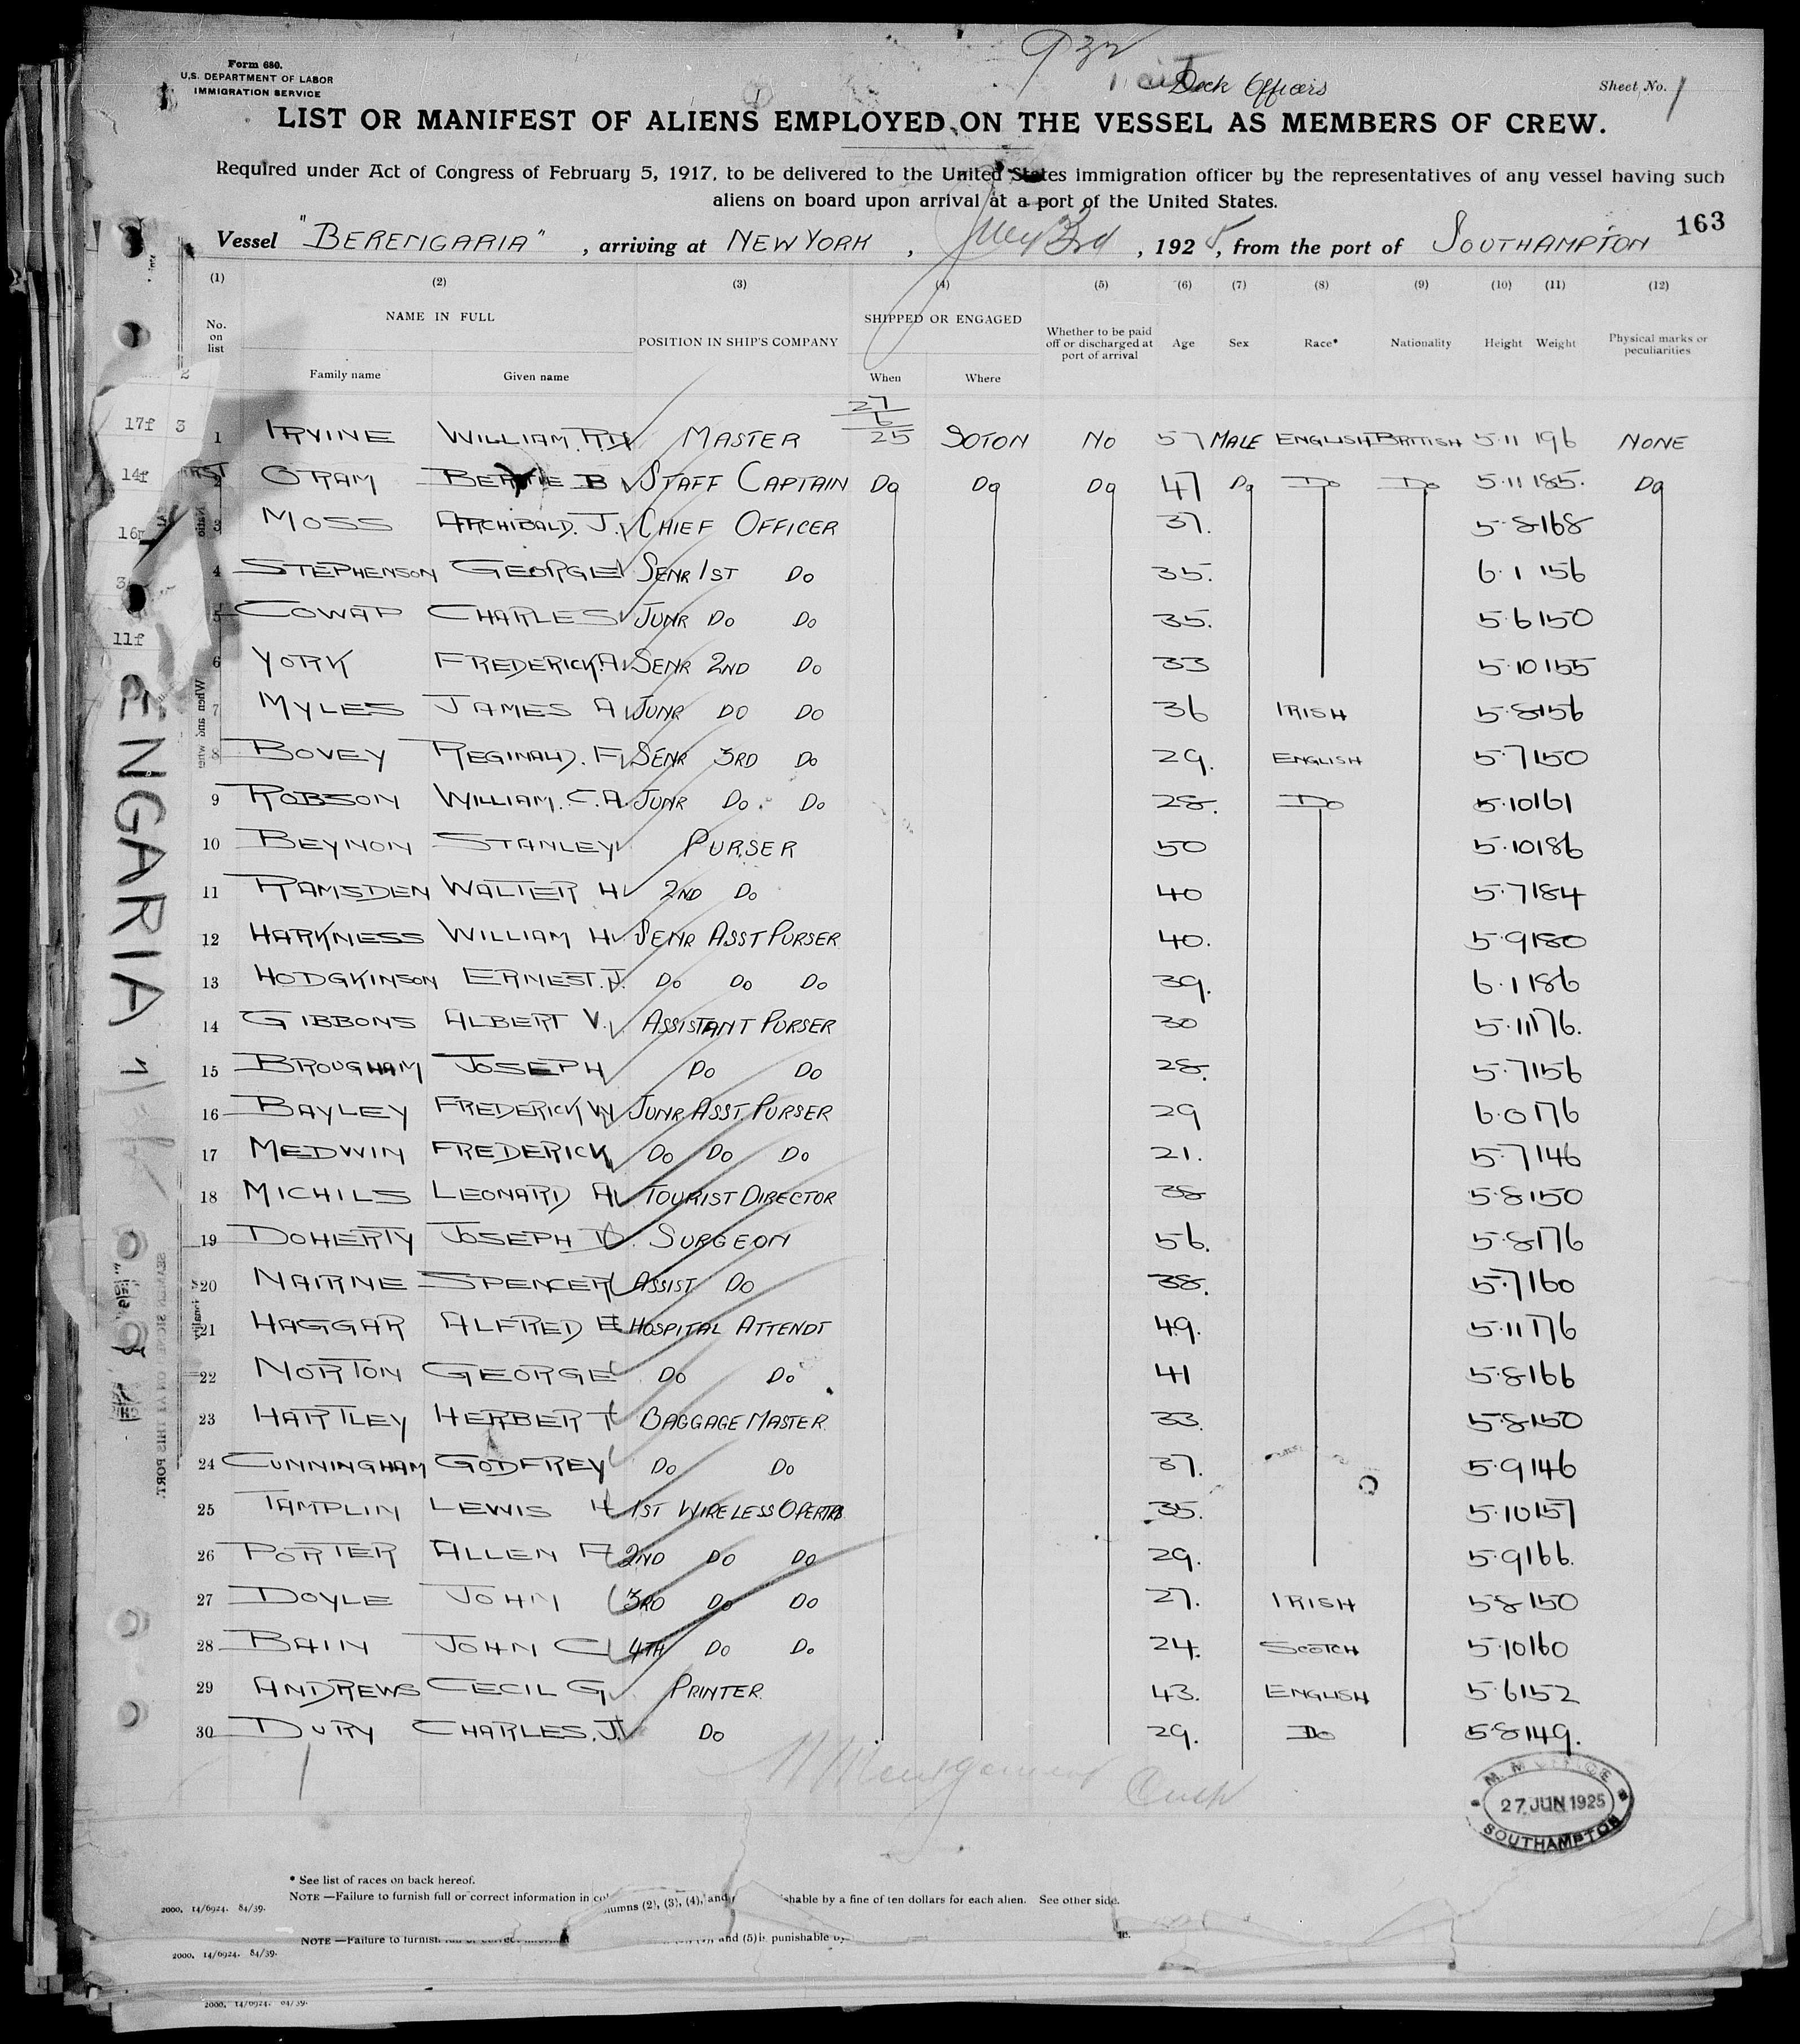 Form 680.
U.S. DEPARTMENT OF LABOR
IMMIGRATION SERVICE
932
Deck Officers
Sheet No. 1
LIST OR MANIFEST OF ALIENS EMPLOYED ON THE VESSEL AS MEMBERS OF CREW.
Required under Act of Congress of February 5, 1917, to be delivered to the United States immigration officer by the representatives of any vessel having such
aliens on board upon arrival at a port of the United States.
163
Vessel "BERENGARIA", arriving at NEW YORK, July 3rd, 1925, from the port of SOUTHAMPTON
(1) (2) (3) (4) (5) (6) (7) (8) (9) (10) (11) (12)
No. on list NAME IN FULL POSITION IN SHIP'S COMPANY SHIPPED OR ENGAGED Whether to be paid off or discharged at port of arrival Age Sex Race* Nationality Height Weight Physical marks or peculiarities
Family name Given name When Where
1 IRVINE WILLIAM. R.D. MASTER 27/6/25 SOTON NO 57 MALE ENGLISH BRITISH 5·11 196 NONE
2 ORAM BERTIE B STAFF CAPTAIN DO DO DO 47 DO DO DO 5·11 185. DO
3 MOSS ARCHIBALD. J. CHIEF OFFICER 37. 5·8 168
4 STEPHENSON GEORGE SENR 1ST DO 35. 6·1 156
5 COWAP CHARLES JUNR DO DO 35. 5·6 150
6 YORK FREDERICK.A SENR 2ND DO 33 5·10 155
7 MYLES JAMES A JUNR DO DO 36 IRISH 5·8 156
8 BOVEY REGINALD. F SENR 3RD DO 29. ENGLISH 5·7 150
9 ROBSON WILLIAM. C.A. JUNR DO. DO 28. DO 5·10 161
10 BEYNON STANLEY PURSER 50 5·10 186
11 RAMSDEN WALTER H 2ND DO 40 5·7 184
12 HARKNESS WILLIAM H SENR ASST PURSER 40. 5·9 180
13 HODGKINSON ERNEST. J. DO DO DO 39. 6·1 186
14 GIBBONS ALBERT V. ASSISTANT PURSER 30 5·11 176.
15 BROUGHAM JOSEPH DO DO 28. 5·7 156
16 BAYLEY FREDERICK W JUNR ASST. PURSER 29 6·0 176
17 MEDWIN FREDERICK DO DO DO 21. 5·7 146
18 MICHILS LEONARD A TOURIST DIRECTOR 38 5·8 150
19 DOHERTY JOSEPH D. SURGEON 56. 5·8 176
20 NAIRNE SPENCER ASSIST DO 38. 5·7 160
21 HAGGAR ALFRED E HOSPITAL ATTENDT 49. 5·11 176
22 NORTON GEORGE DO DO 41 5·8 166
23 HARTLEY HERBERT BAGGAGE MASTER. 33. 5·8 150
24 CUNNINGHAM GODFREY DO DO 37. 5·9 146
25 TAMPLIN LEWIS H 1ST WIRELESS OPERTR. 35. 5·10 157
26 PORTER ALLEN A 2ND DO DO 29. 5·9 166.
27 DOYLE JOHN 3RD DO DO 27. IRISH 5·8 150
28 BAIN JOHN C 4TH DO DO 24. SCOTCH 5·10 160
29 ANDREWS CECIL G PRINTER. 43. ENGLISH 5·6 152
30 DURY CHARLES. J. DO 29. DO 5·8 149.
17f 3
14f
11f
ENGARIA
27 JUN 1925
SOUTHAMPTON
* See list of races on back hereof.
NOTE —Failure to furnish full or correct information in columns (2), (3), (4), and shable by a fine of ten dollars for each alien. See other side.
2000, 14/6924. 84/39.
NOTE —Failure to furnish and (5) is punishable by
2000, 14/6924. 84/39.
2000, 14/6924. 84/39.